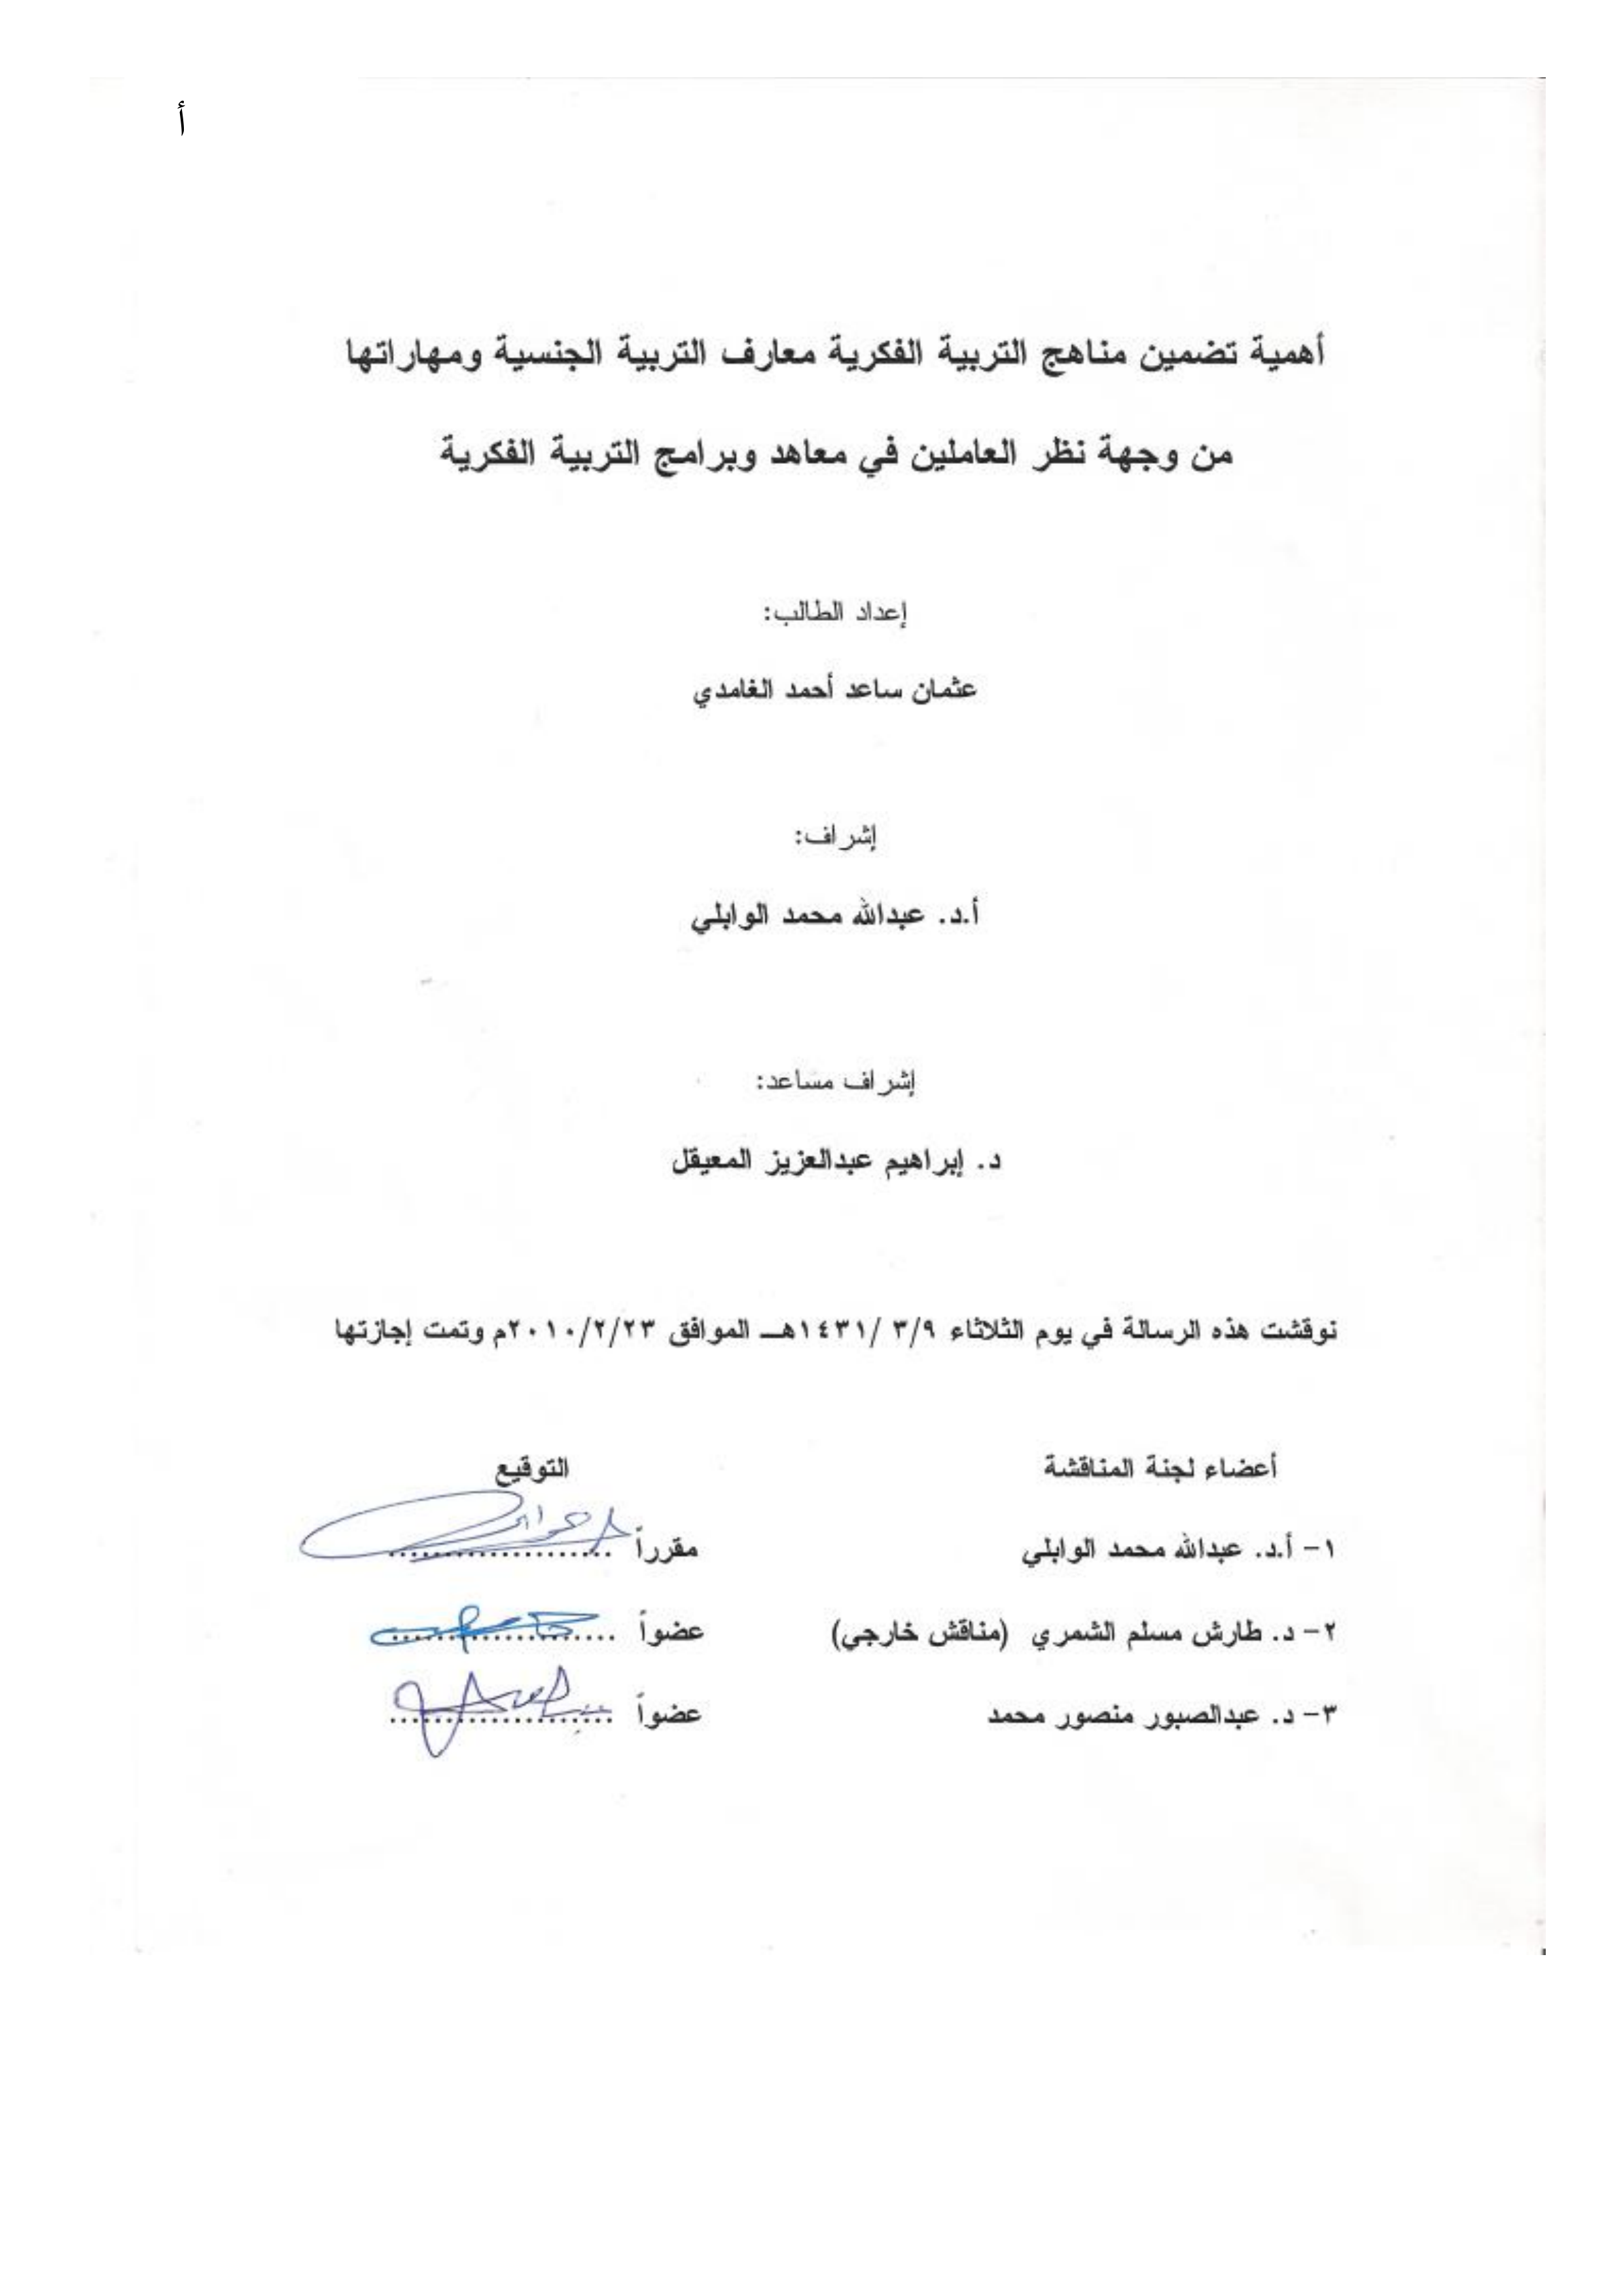 أ
أهمية تضمين مناهج التربية الفكرية معارف التربية الجنسية ومهاراتها
من وجهة نظر العاملين في معاهد وبرامج التربية الفكرية
إعداد الطالب:
عثمان ساعد أحمد الغامدي
إشراف:
أ.د. عبدالله محمد الوابلي
إشراف مساعد:
د. إبراهيم عبدالعزيز المعيقل
نوقشت هذه الرسالة في يوم الثلاثاء ٣/٩ /١٤٣١هـ الموافق ٢٠١٠/٢/٢٣م وتمت إجازتها
أعضاء لجنة المناقشة التوقيع
١- أ.د. عبدالله محمد الوابلي مقرراً ....................
٢- د. طارش مسلم الشمري (مناقش خارجي) عضواً ....................
٣- د. عبدالصبور منصور محمد عضواً ....................